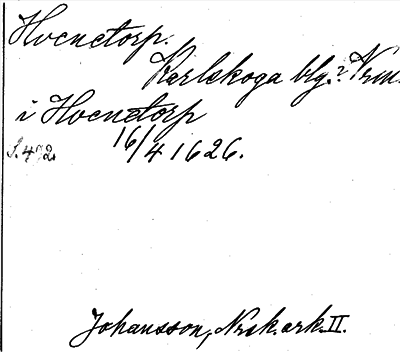 Hvenetorp.
Karlskoga blg? Vrm.
i Hvenetorp
S. 492. 16/4 1626.
Johansson, Nrsk. ark. II.